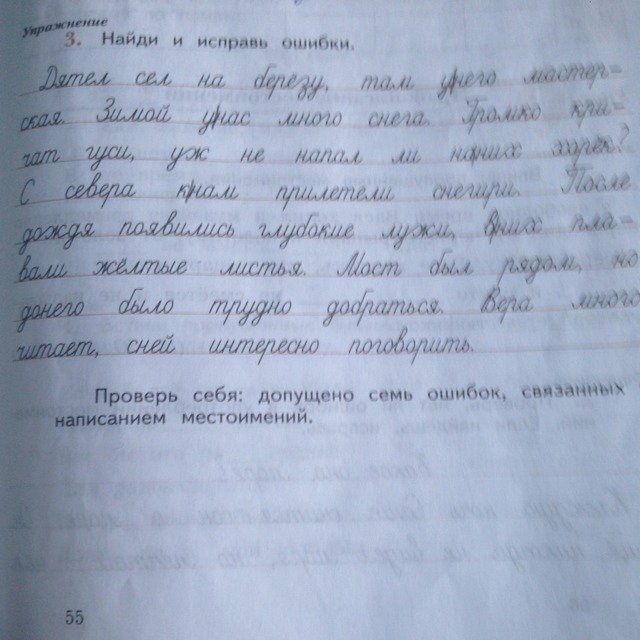 Упражнение
3. Найди и исправь ошибки.
Дятел сел на березу, там унего мастер=
ская. Зимой унас много снега. Громко кри=
чат гуси, уж не напал ли наних хорёк?
С севера кнам прилетели снегири. После
дождя появились глубокие лужи, вних пла=
вали жёлтые листья. Мост был рядом, но
донего было трудно добраться. Вера много
читает, сней интересно поговорить.
Проверь себя: допущено семь ошибок, связанных
написанием местоимений.
55